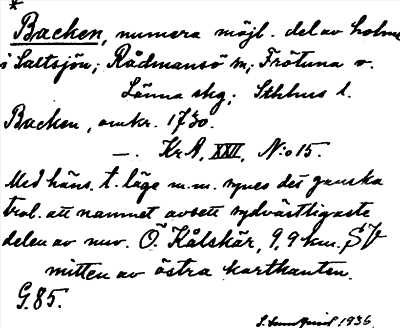 *
Backen, numera möjl. del av holme
i Saltsjön; Rådmansö sn; Frötuna o.
Länna skg; Sthlms l.
Backen, omkr. 1730.
—. KrA, XXII, N:o 15.
Med häns. t. läge m.m. synes det ganska
trol. att namnet avsett sydvästligaste
delen av nuv. Ö. Kålskär, 9,9 km. SV
mitten av östra kartkanten.
G.85.
S. Sundquist 1936